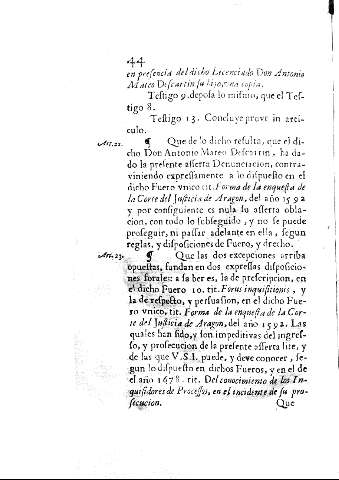 44
en presencia del dicho Licenciado Don Antonio
Mateo Descartin su hijo, una copia.
Testigo 9. deposa lo mismo, que el Tes-
tigo 8.
Testigo 13. Concluye prove in arti-
culo.
Art. 22. ¶ Que de lo dicho resulta, que el di-
cho Don Antonio Mateo Descartin, ha da-
do la presente asserta Denunciacion, contra-
viniendo expressamente a lo dispuesto en el
dicho Fuero vnico tit. Forma de la enquesta de
la Corte del Justicia de Aragon, del año 1592
y por consiguiente es nula lo asserta obla-
cion, con todo lo subseguido, y no se puede
proseguir, ni passar adelante en ella, segun
reglas, y disposiciones de Fuero, y drecho.
Art. 23. ¶ Que las dos excepciones arriba
opuestas, fundan en dos expressas disposicio-
nes forales: a saber es, la de prescripcion, en
el dicho Fuero 10. tit. Forus inquisitionis, y
la de respesto, y persuasion, en el dicho Fue-
ro vnico, tit. Forma de la enquesta de la Cor-
te del Justicia de Aragon, del año 1592. Las
quales han sido, y son impeditivas del ingres-
so, y prosecucion de la presente asserta lite, y
de las que V.S.I. puede, y deve conocer, se-
gun lo dispuesto en dichos Fueros, y en el de
el año 1678. tit. Del conocimiento de los In-
quisidores de Processos, en el incidente de su pro-
secucion.
Que